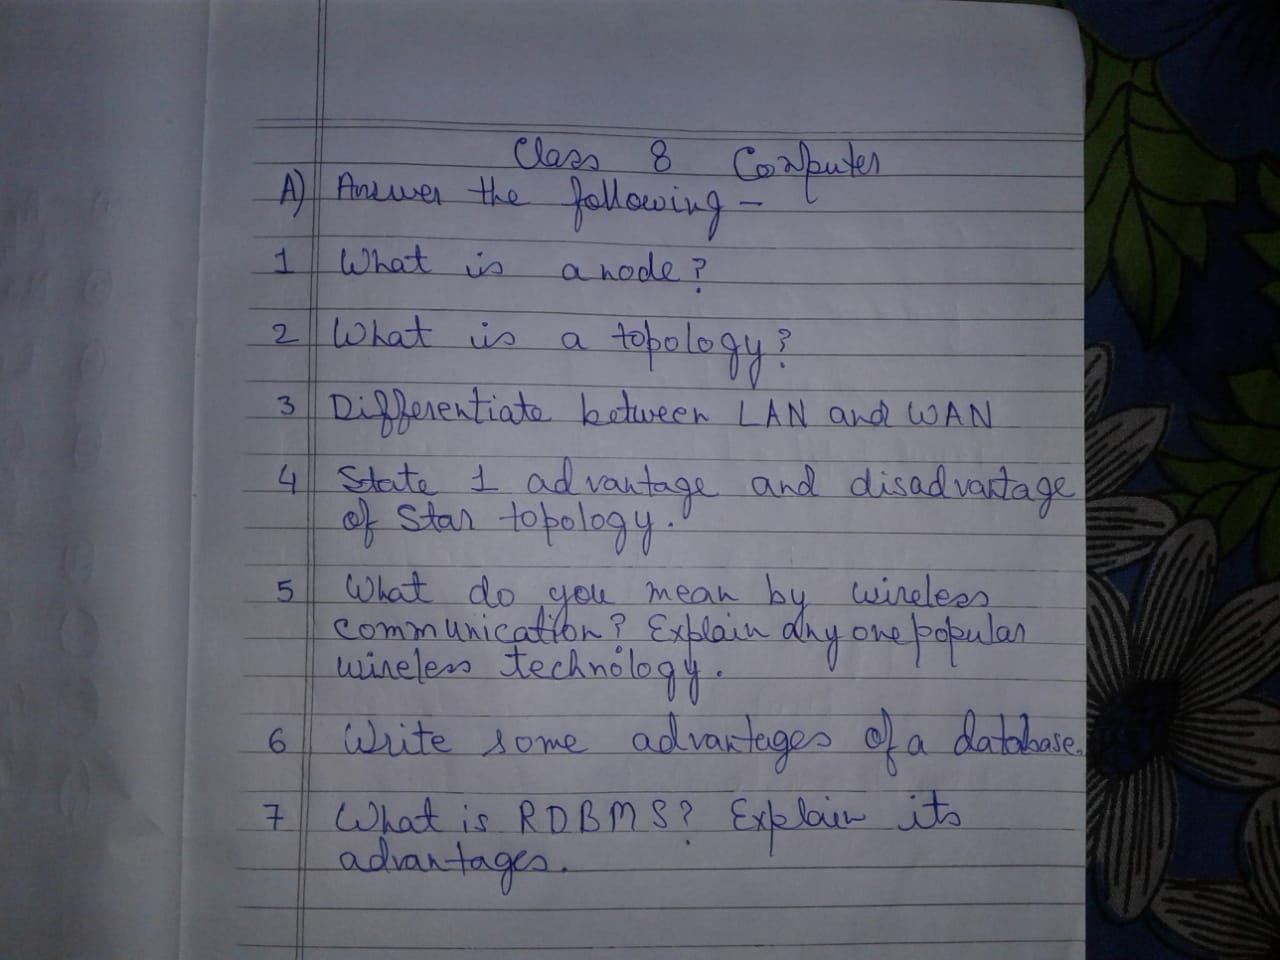 Class 8 Computer
A) Answer the following -
1 What is a node?
2 What is a topology?
3 Differentiate between LAN and WAN
4 State 1 advantage and disadvantage
of Star topology.
5 What do you mean by wireless
communication? Explain any one popular
wireless technology.
6 Write some advantages of a database.
7 What is RDBMS? Explain its
advantages.